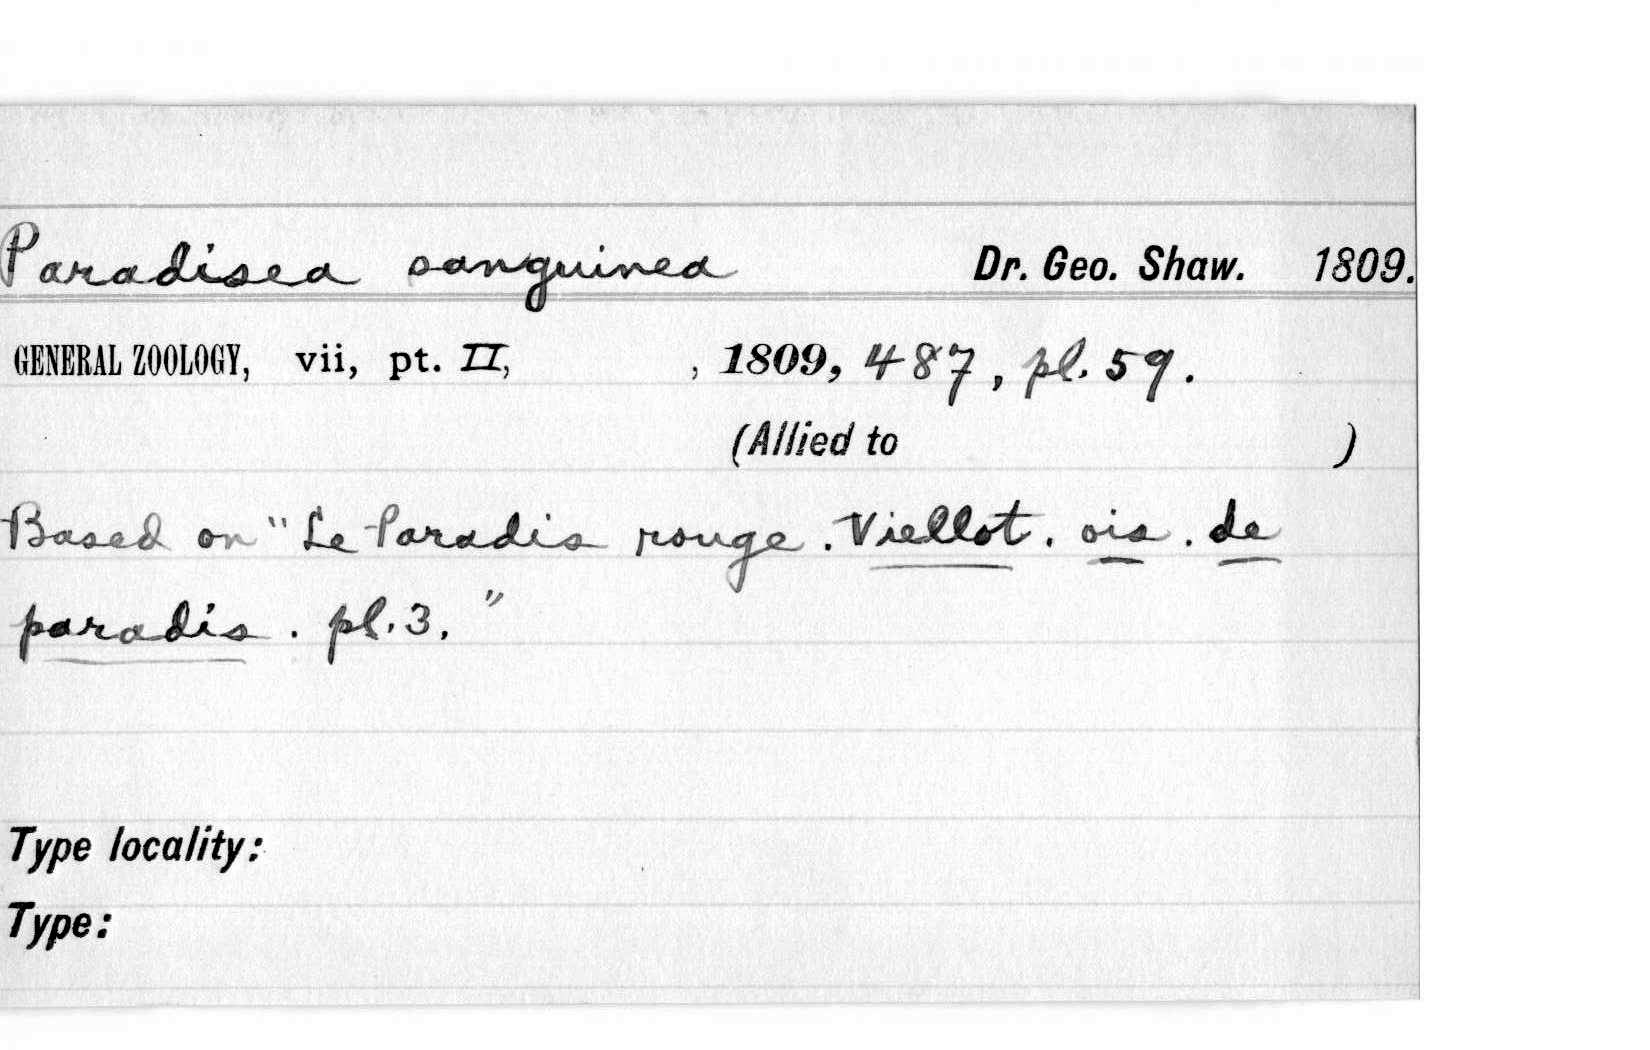 Paradisea sanguinea Dr. Geo. Shaw. 1809.
GENERAL ZOOLOGY, vii, pt. II, , 1809, 487, pl. 59.
(Allied to )
Based on "Le Paradis rouge. Viellot. ois. de
paradis. pl. 3."
Type locality:
Type: